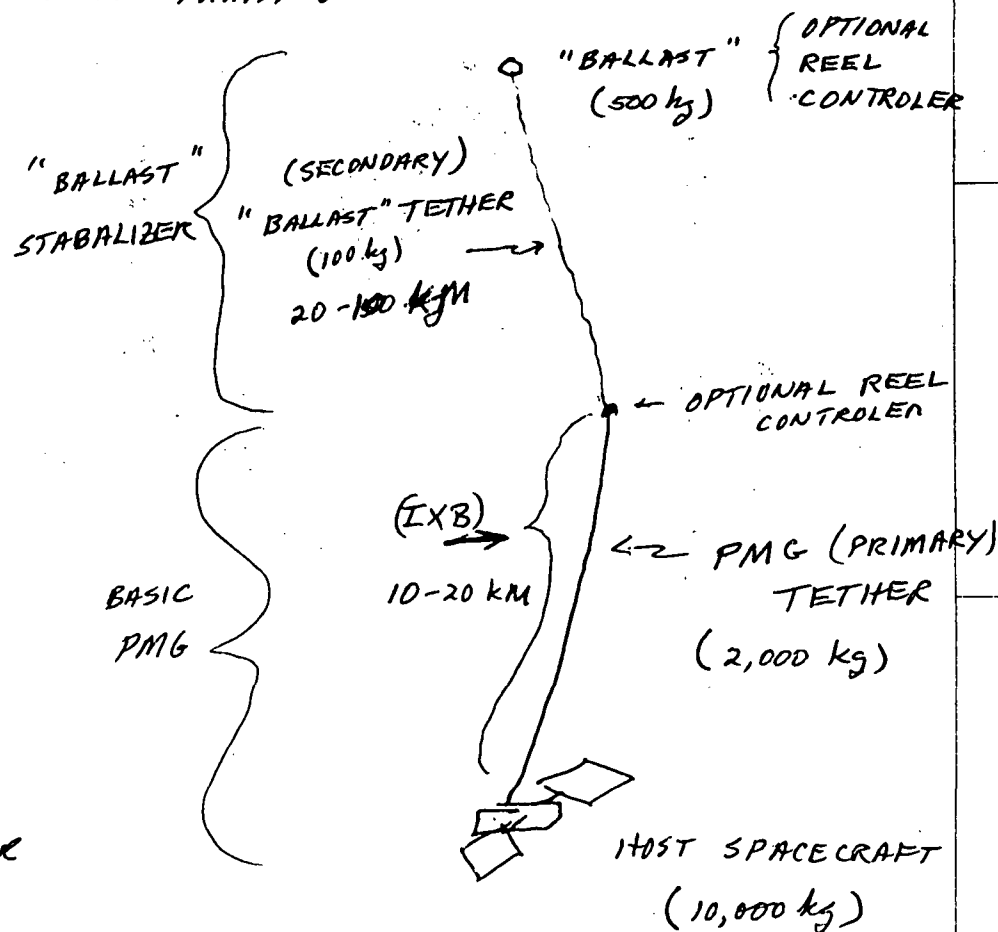 "BALLAST"
(500 kg)
OPTIONAL
REEL
CONTROLER
"BALLAST"
STABALIZER
(SECONDARY)
"BALLAST" TETHER
(100 kg)
20-100 KM
OPTIONAL REEL
CONTROLER
(IXB)
10-20 KM
PMG (PRIMARY)
TETHER
(2,000 kg)
BASIC
PMG
HOST SPACECRAFT
(10,000 kg)